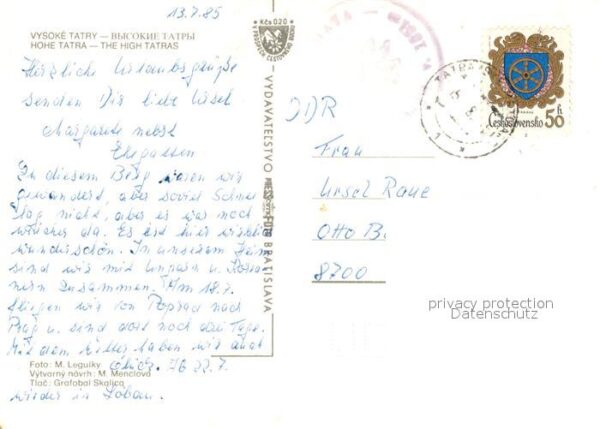 13.7.85
VYSOKÉ TATRY — ВЫСОКИЕ ТАТРЫ
HOHE TATRA — THE HIGH TATRAS
Kčs 0,20
Herzliche Urlaubsgrüße
senden Dir liebe Ursel
Margarete nebst
Ehegatten
In diesem Berg waren wir
gewandert, aber soviel Schnee
lag nicht, aber es war noch
welcher da. Es ist hier wirklich
wunderschön. In unserem Heim
sind wir mit Ungarn u.
zusammen. Am 18.7.
fliegen wir von Poprad nach
Prag u. sind dort noch drei Tage.
Mit dem Wetter haben wir auch
Glück. Ab 22.7.
wieder in Löbau.
Foto: M. Legulky
Výtvarný návrh: M. Menclová
Tlač: Grafobal Skalica
VYDAVATEĽSTVO
BRATISLAVA
TATRA
Československo 50 h
DDR
Frau
Ursel Raue
Otto B.
8700
privacy protection
Datenschutz